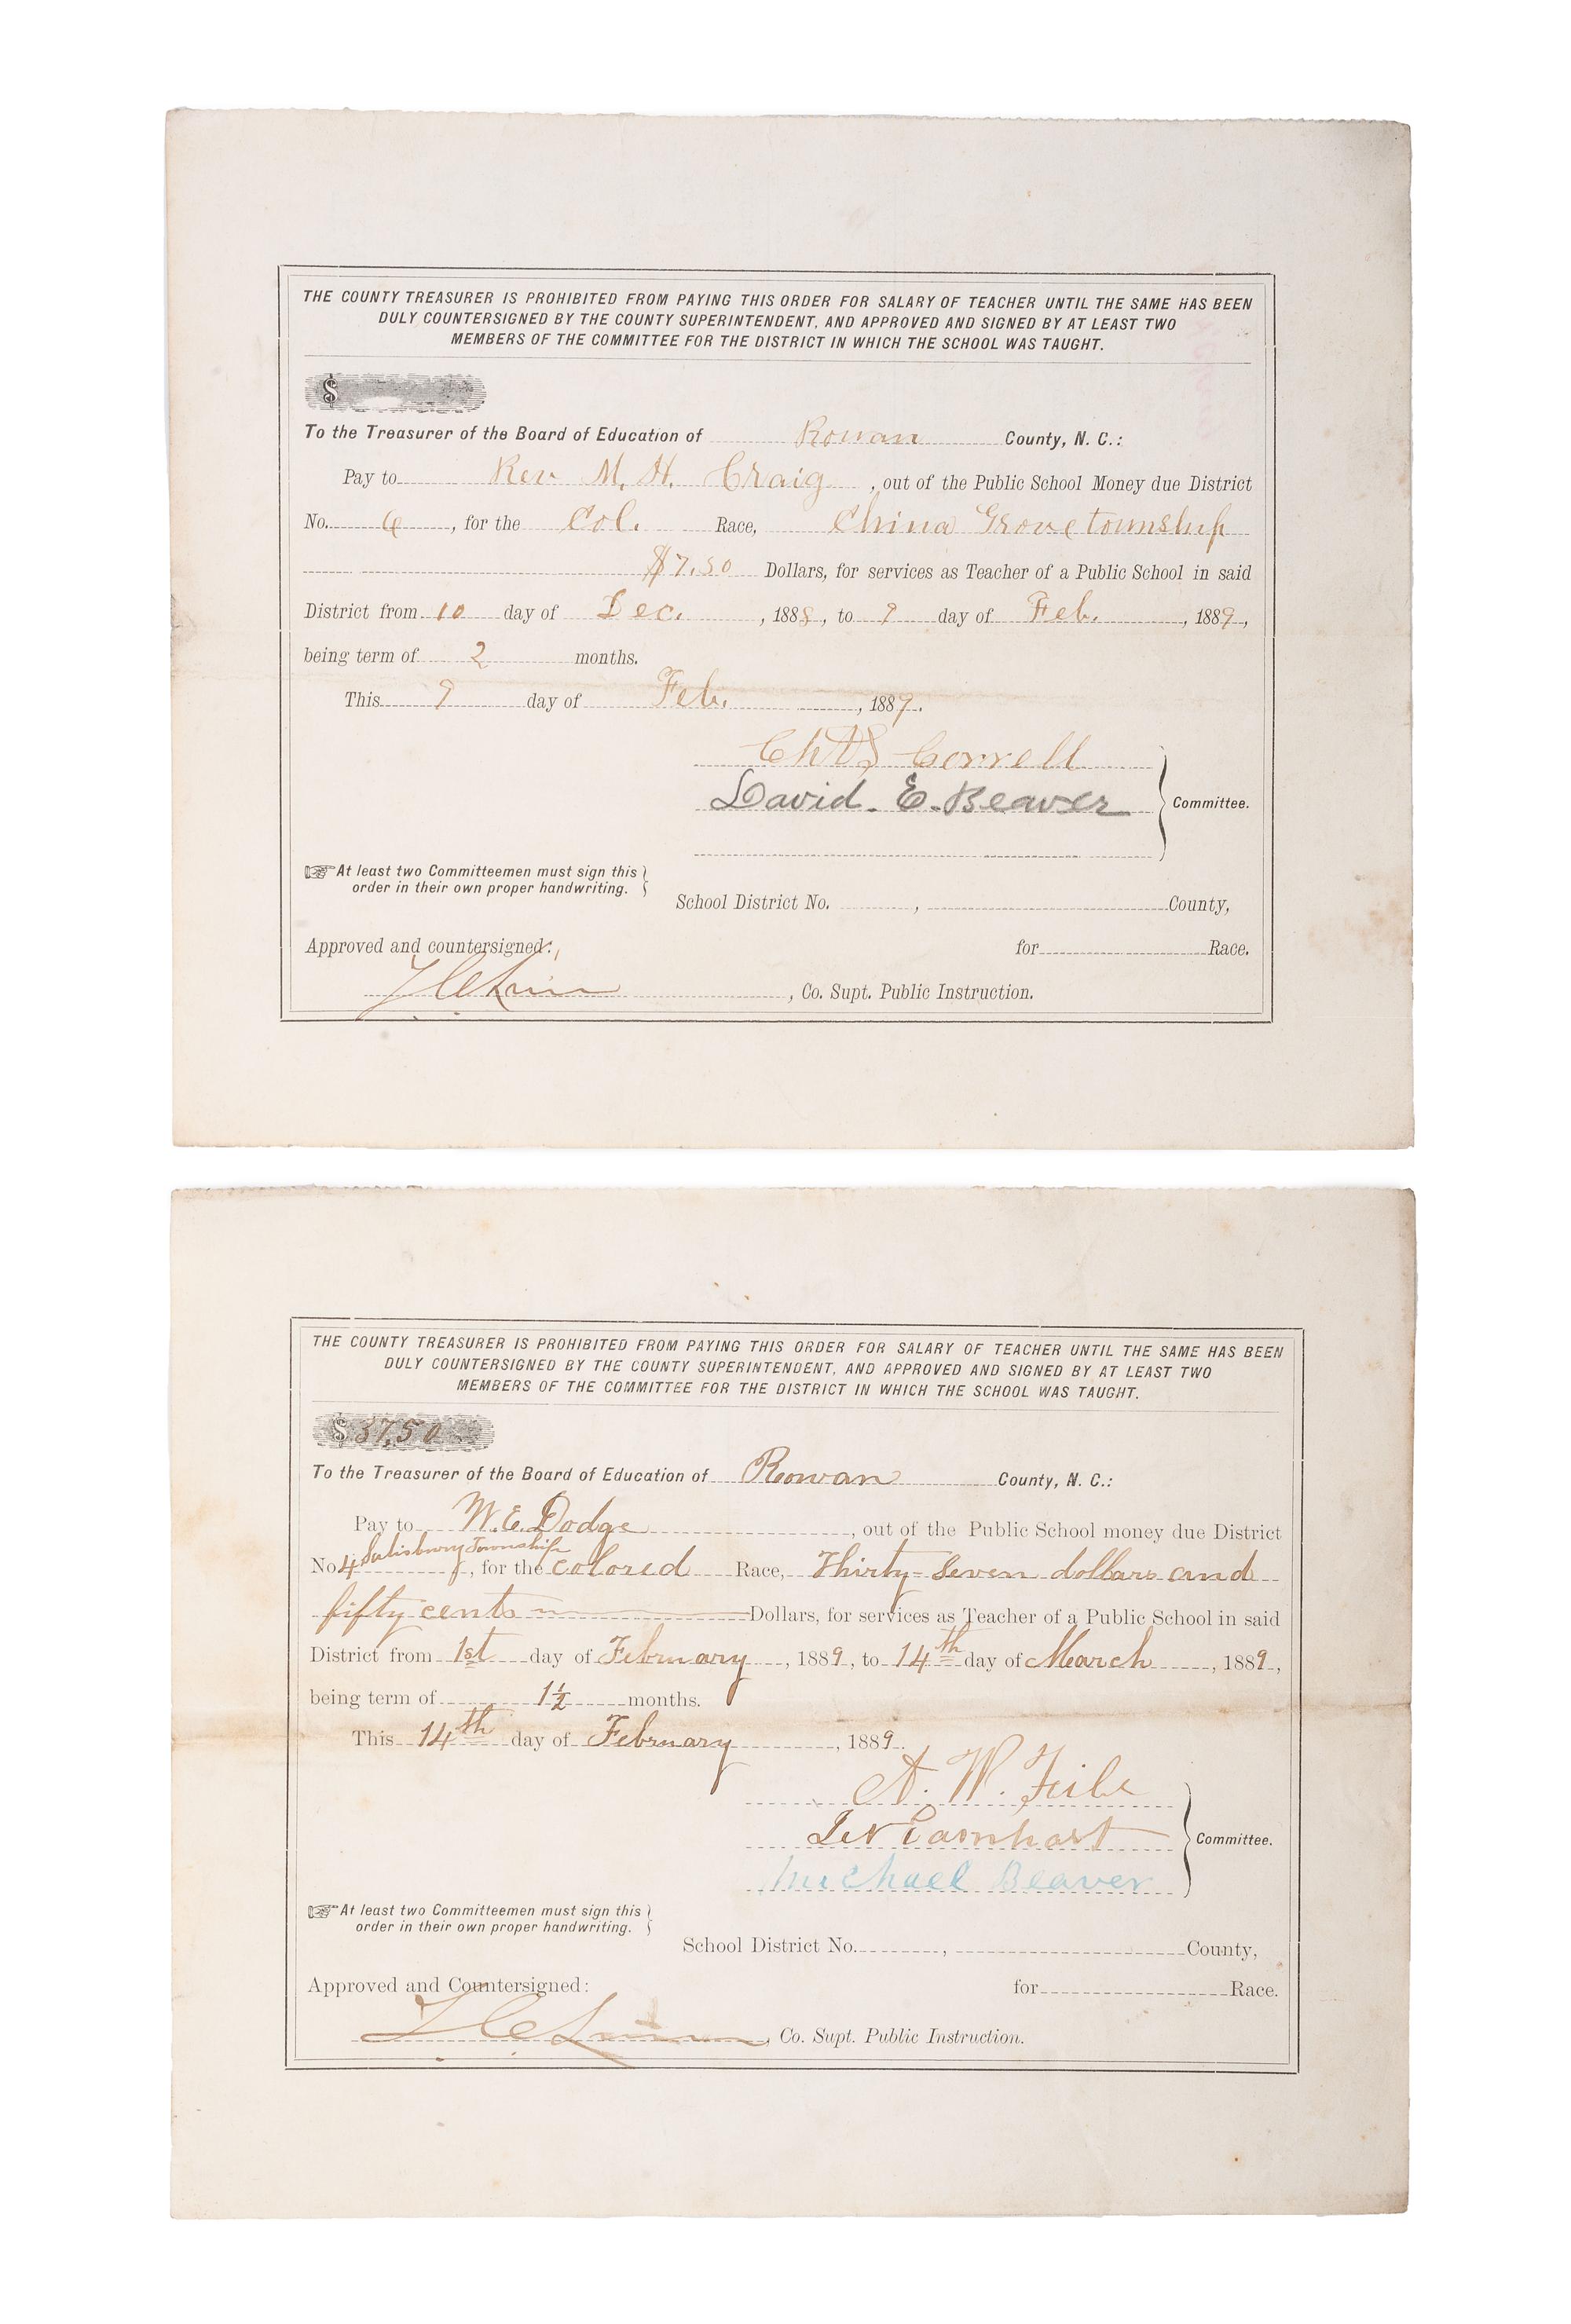 THE COUNTY TREASURER IS PROHIBITED FROM PAYING THIS ORDER FOR SALARY OF TEACHER UNTIL THE SAME HAS BEEN
DULY COUNTERSIGNED BY THE COUNTY SUPERINTENDENT, AND APPROVED AND SIGNED BY AT LEAST TWO
MEMBERS OF THE COMMITTEE FOR THE DISTRICT IN WHICH THE SCHOOL WAS TAUGHT.
$
To the Treasurer of the Board of Education of Rowan County, N. C.:
Pay to Rev M. H. Craig, out of the Public School Money due District
No. 6, for the Col. Race, China Grove township
$7.50 Dollars, for services as Teacher of a Public School in said
District from 10 day of Dec., 1888, to 9 day of Feb., 1889,
being term of 2 months.
This 9 day of Feb., 1889.
Chas Correll
David. E. Beaver
Committee.
At least two Committeemen must sign this
order in their own proper handwriting.
School District No. , County,
Approved and countersigned: for Race.
, Co. Supt. Public Instruction.
THE COUNTY TREASURER IS PROHIBITED FROM PAYING THIS ORDER FOR SALARY OF TEACHER UNTIL THE SAME HAS BEEN
DULY COUNTERSIGNED BY THE COUNTY SUPERINTENDENT, AND APPROVED AND SIGNED BY AT LEAST TWO
MEMBERS OF THE COMMITTEE FOR THE DISTRICT IN WHICH THE SCHOOL WAS TAUGHT.
$ 37,50
To the Treasurer of the Board of Education of Rowan County, N. C.:
Pay to W. E. Dodge, out of the Public School money due District
No 4 Salisbury Township, for the colored Race, Thirty-Seven dollars and
fifty cents Dollars, for services as Teacher of a Public School in said
District from 1st day of February, 1889, to 14th day of March, 1889,
being term of 1½ months.
This 14th day of February, 1889.
A. W.
Earnhart
Michael Beaver
Committee.
At least two Committeemen must sign this
order in their own proper handwriting.
School District No. , County,
Approved and Countersigned: for Race.
, Co. Supt. Public Instruction.